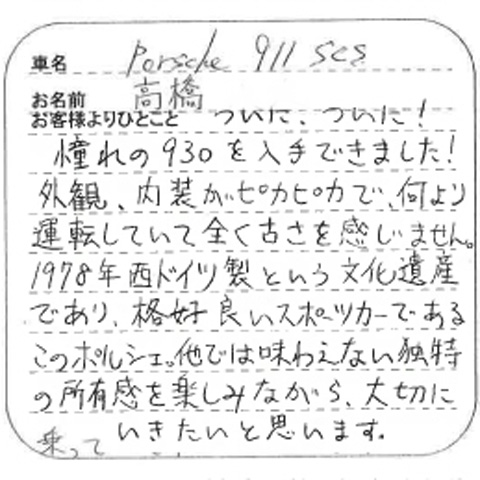 車名 Porsche 911 SCS
お名前 高橋
お客様よりひとこと ついに、ついに!
憧れの930を入手できました!
外観、内装がピカピカで、何より
運転していて全く古さを感じません。
1978年西ドイツ製という文化遺産
であり、格好良いスポーツカーである
このポルシェ。他では味わえない独特
の所有感を楽しみながら、大切に
乗って いきたいと思います。